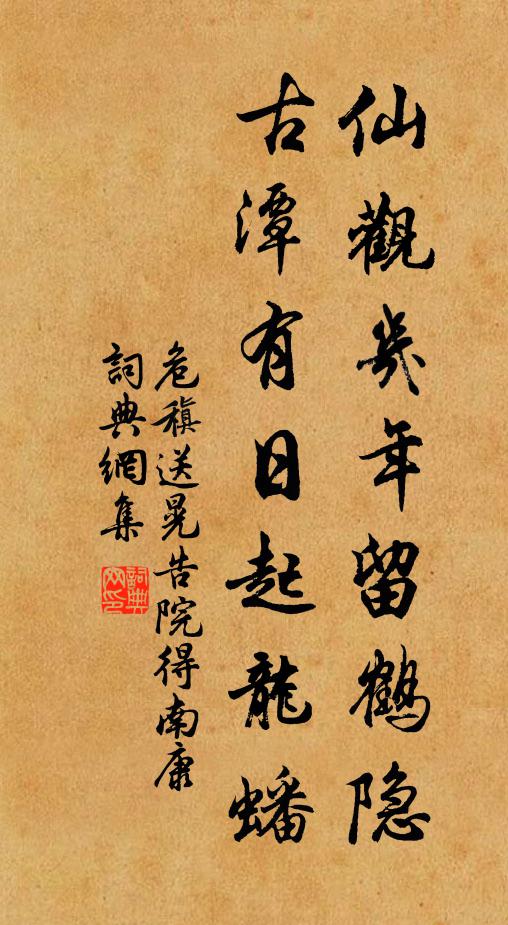 仙觀幾年留鶴隐
古潭有日起龍蟠
危稹送晃告院得南康
詞典網集
詞典网印